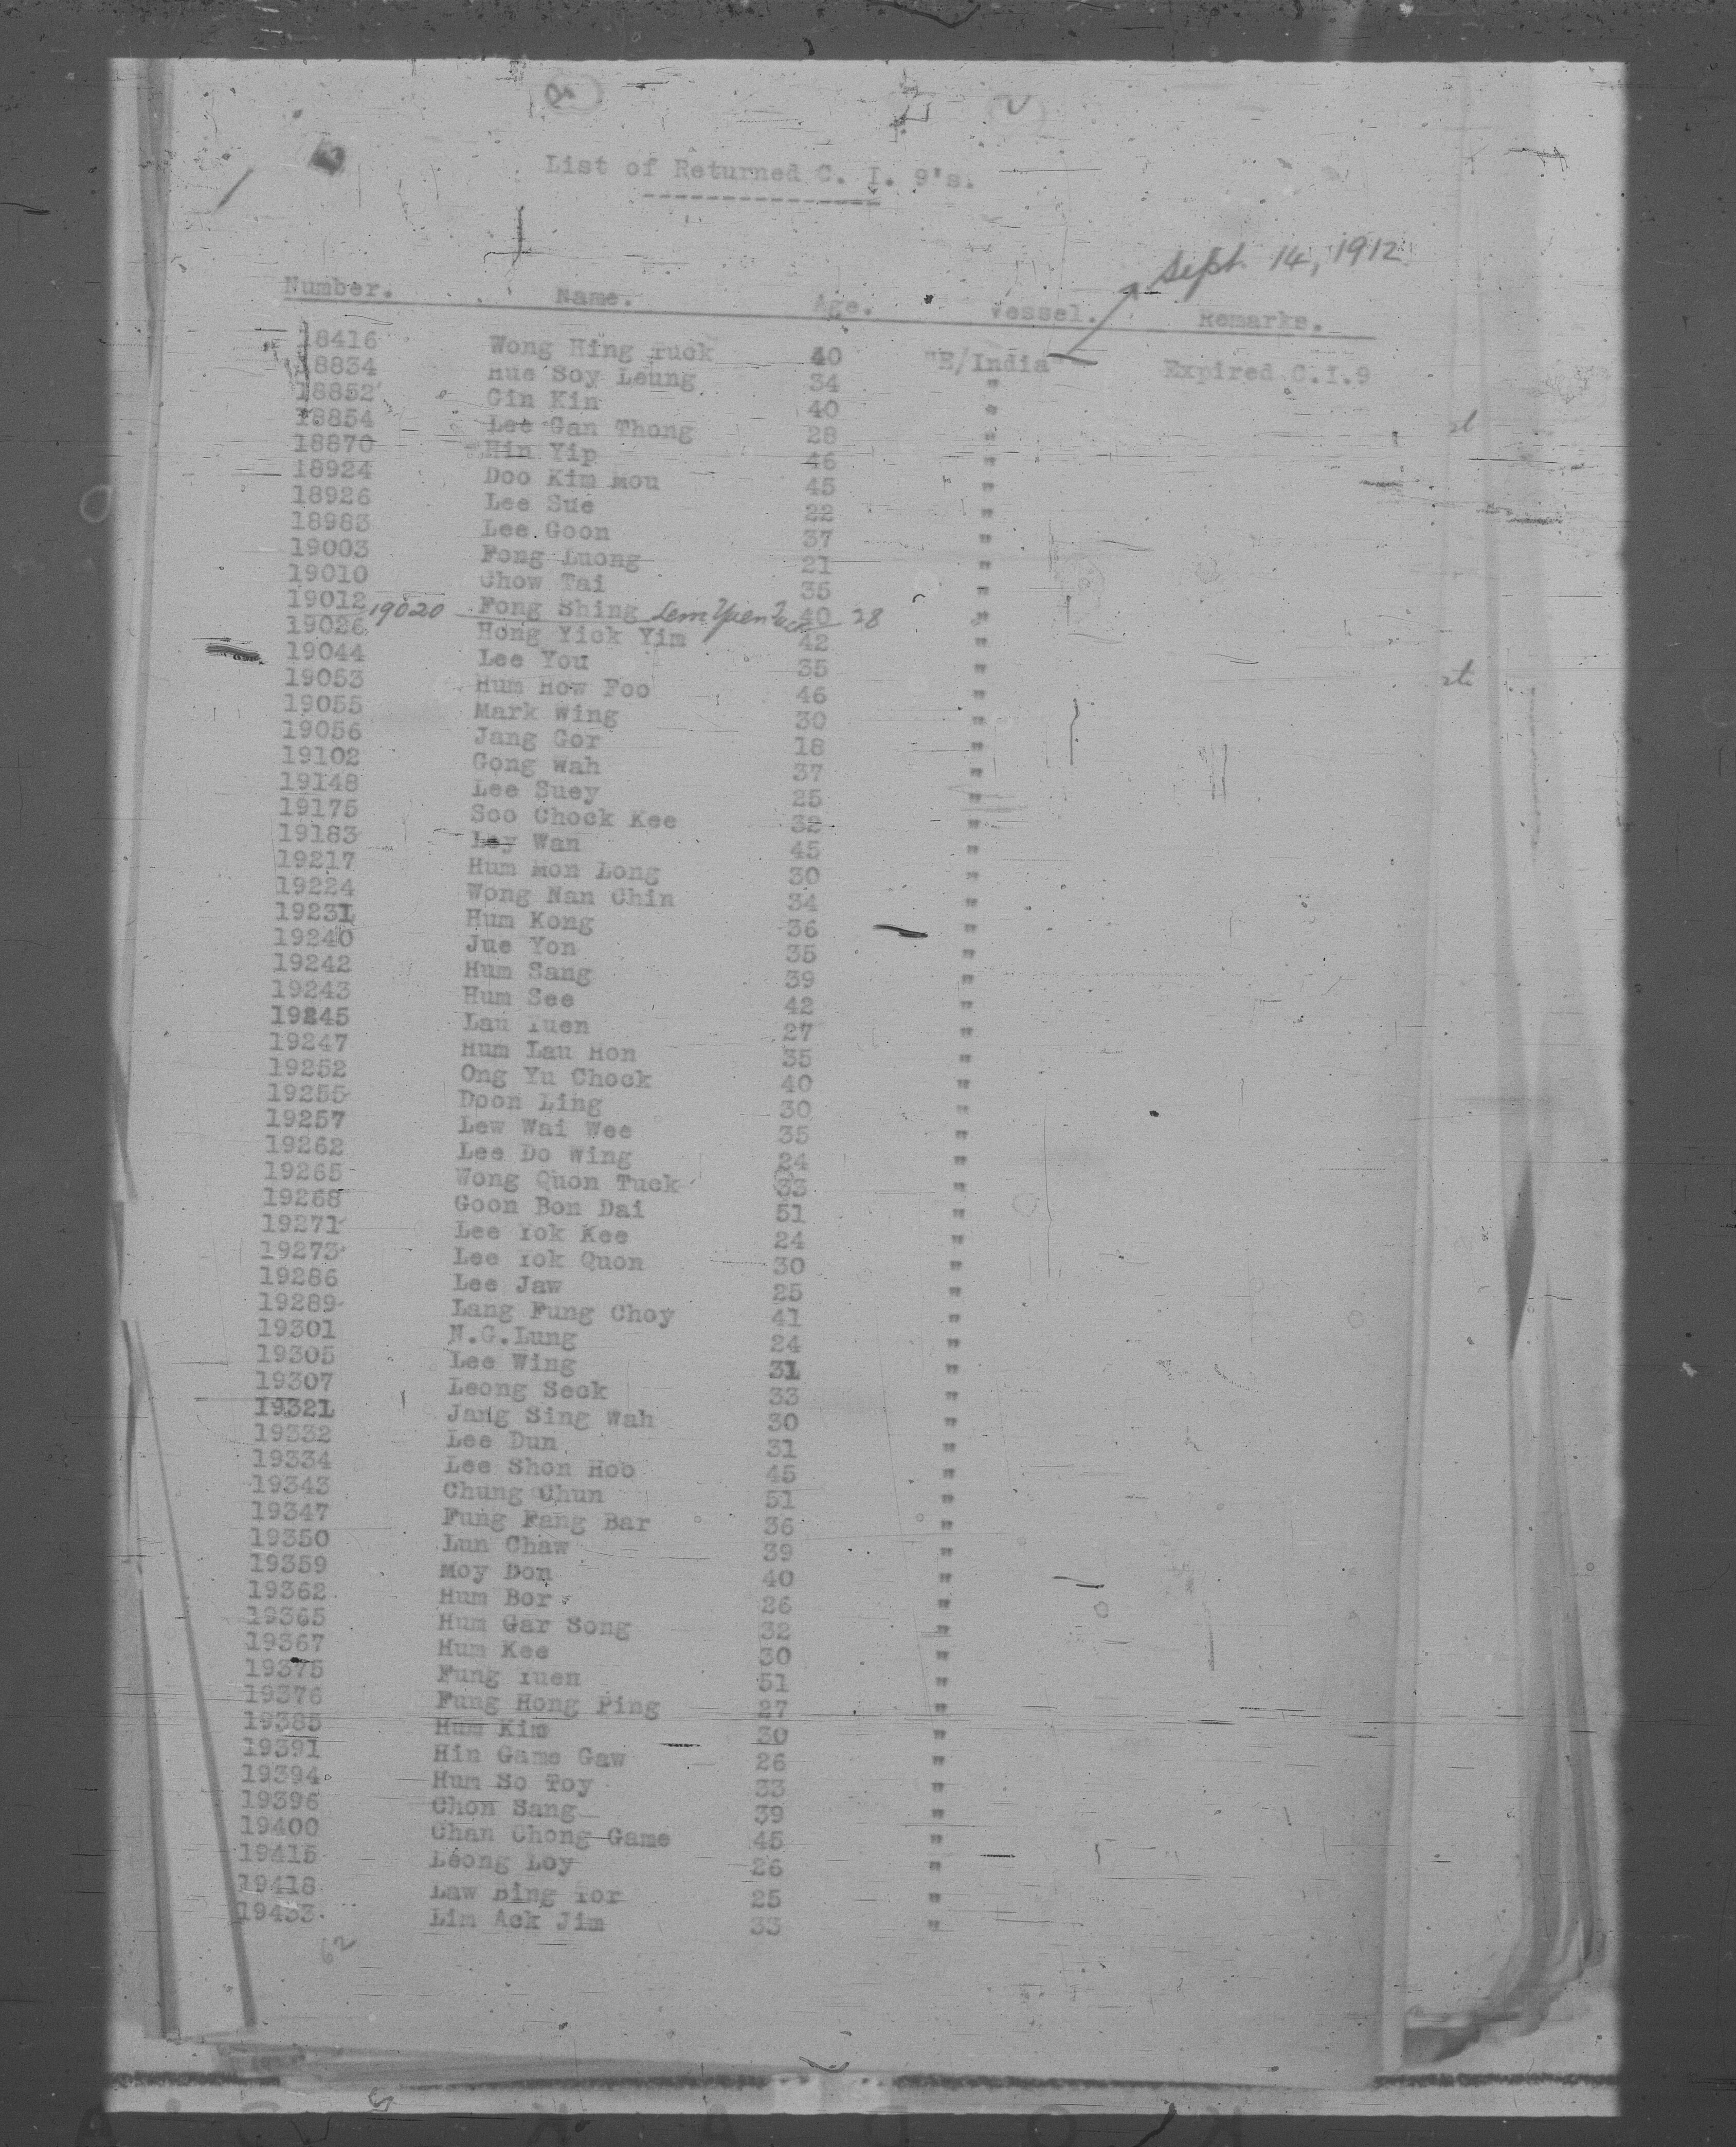 List of Returned C. I. 9's.
Sept. 14, 1912
Number. Name. Age. Vessel. Remarks.
18416 Wong Hing Tuck 40 "E/India Expired C.I.9
18834 Hue Soy Leung 34 "
18852 Gin Kin 40 "
18854 Lee Gan Thong 28 "
18870 Hin Yip 46 "
18924 Doo Kim Mou 45 "
18926 Lee Sue 22 "
18983 Lee Goon 37 "
19003 Fong Duong 21 "
19010 Chow Tai 35 "
19012 Fong Shing 40 "
19020 Lem Yuen 28
19026 Hong Yick Yim 42 "
19044 Lee You 35 "
19053 Hum How Foo 46 "
19055 Mark Wing 30 "
19056 Jang Gor 18 "
19102 Gong Wah 37 "
19148 Lee Suey 25 "
19175 Soo Chock Kee 32 "
19183 Loy Wan 45 "
19217 Hum Mon Long 30 "
19224 Wong Nan Chin 34 "
19231 Hum Kong 36 "
19240 Jue Yon 35 "
19242 Hum Sang 39 "
19243 Hum See 42 "
19245 Lau Yuen 27 "
19247 Hum Lau Hon 35 "
19252 Ong Yu Chock 40 "
19255 Doon Ling 30 "
19257 Lew Wai Wee 35 "
19262 Lee Do Wing 24 "
19265 Wong Quon Tuck 33 "
19268 Goon Bon Dai 51 "
19271 Lee Yok Kee 24 "
19273 Lee Yok Quon 30 "
19286 Lee Jaw 25 "
19289 Lang Fung Choy 41 "
19301 N.G.Lung 24 "
19305 Lee Wing 31 "
19307 Leong Seck 33 "
19321 Jang Sing Wah 30 "
19332 Lee Dun 31 "
19334 Lee Shon Hoo 45 "
19343 Chung Chun 51 "
19347 Fung Fang Bar 36 "
19350 Lun Chaw 39 "
19359 Moy Don 40 "
19362 Hum Bor 26 "
19365 Hum Gar Song 32 "
19367 Hum Kee 30 "
19375 Fung Yuen 51 "
19376 Fung Hong Ping 27 "
19385 Hum Kim 30 "
19391 Hin Game Gaw 26 "
19394 Hum So Toy 33 "
19396 Chon Sang 39 "
19400 Chan Chong Game 45 "
19415 Leong Loy 26 "
19418 Law Bing Tor 25 "
19433 Lim Ack Jim 33 "
62